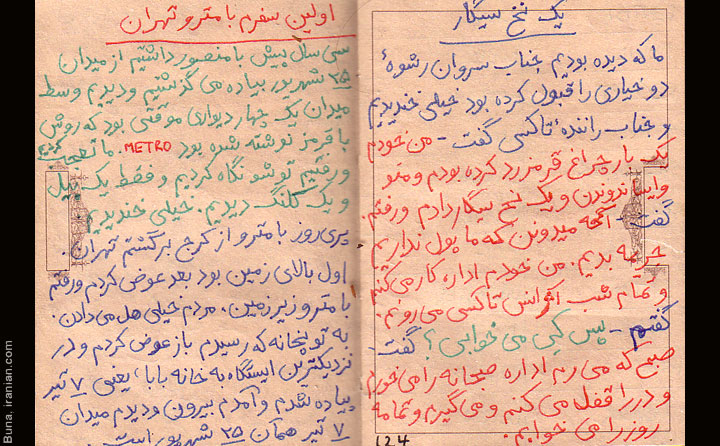 یک نخ سیگار
ما که دیده بودیم جناب سروان رشوهٔ
دو خیاری را قبول کرده بود خیلی خندیدیم
و جناب رانندهٔ تاکسی گفت - من خودم
یک بار چراغ قرمز رد کرده بودم و منو
وایساندوندن و یک نخ سیگار دادم و رفتم.
گفت - آخه میدونن که ما پول نداریم
جریمه بدیم. من خودم اداره کار می کنم
و تمام شب آژانس تاکسی می رونم.
گفتم - پس کی می خوابی؟ گفت -
صبح که می رم اداره صبحانه را می خورم
و در را قفل می کنم و می گیرم و تمامه
روز را می خوابم.
۱۲۴
اولین سفرم با مترو تهران
سی سال پیش با منصور داشتیم از میدان
۲۵ شهریور پیاده می گذشتیم و دیدیم وسط
میدان یک چهار دیواری موقتی بود که روش
با قرمز نوشته شده بود METRO. ما تعجب کردیم
و رفتیم توشو نگاه کردیم و فقط یک بیل
و یک کلنگ دیدیم. خیلی خندیدیم.
پری روز با مترو از کرج برگشتم تهران.
اول بالای زمین بود بعد عوض کردم و رفتم
با مترو زیر زمین. مردم خیلی هل می دادن.
به توپخانه که رسیدم باز عوض کردم و در
نزدیکترین ایستگاه به خانه بابا، یعنی ۷ تیر
پیاده شدم و آمدم بیرون و دیدم میدان
۷ تیر همان ۲۵ شهریور است.
Buna, iranian.com